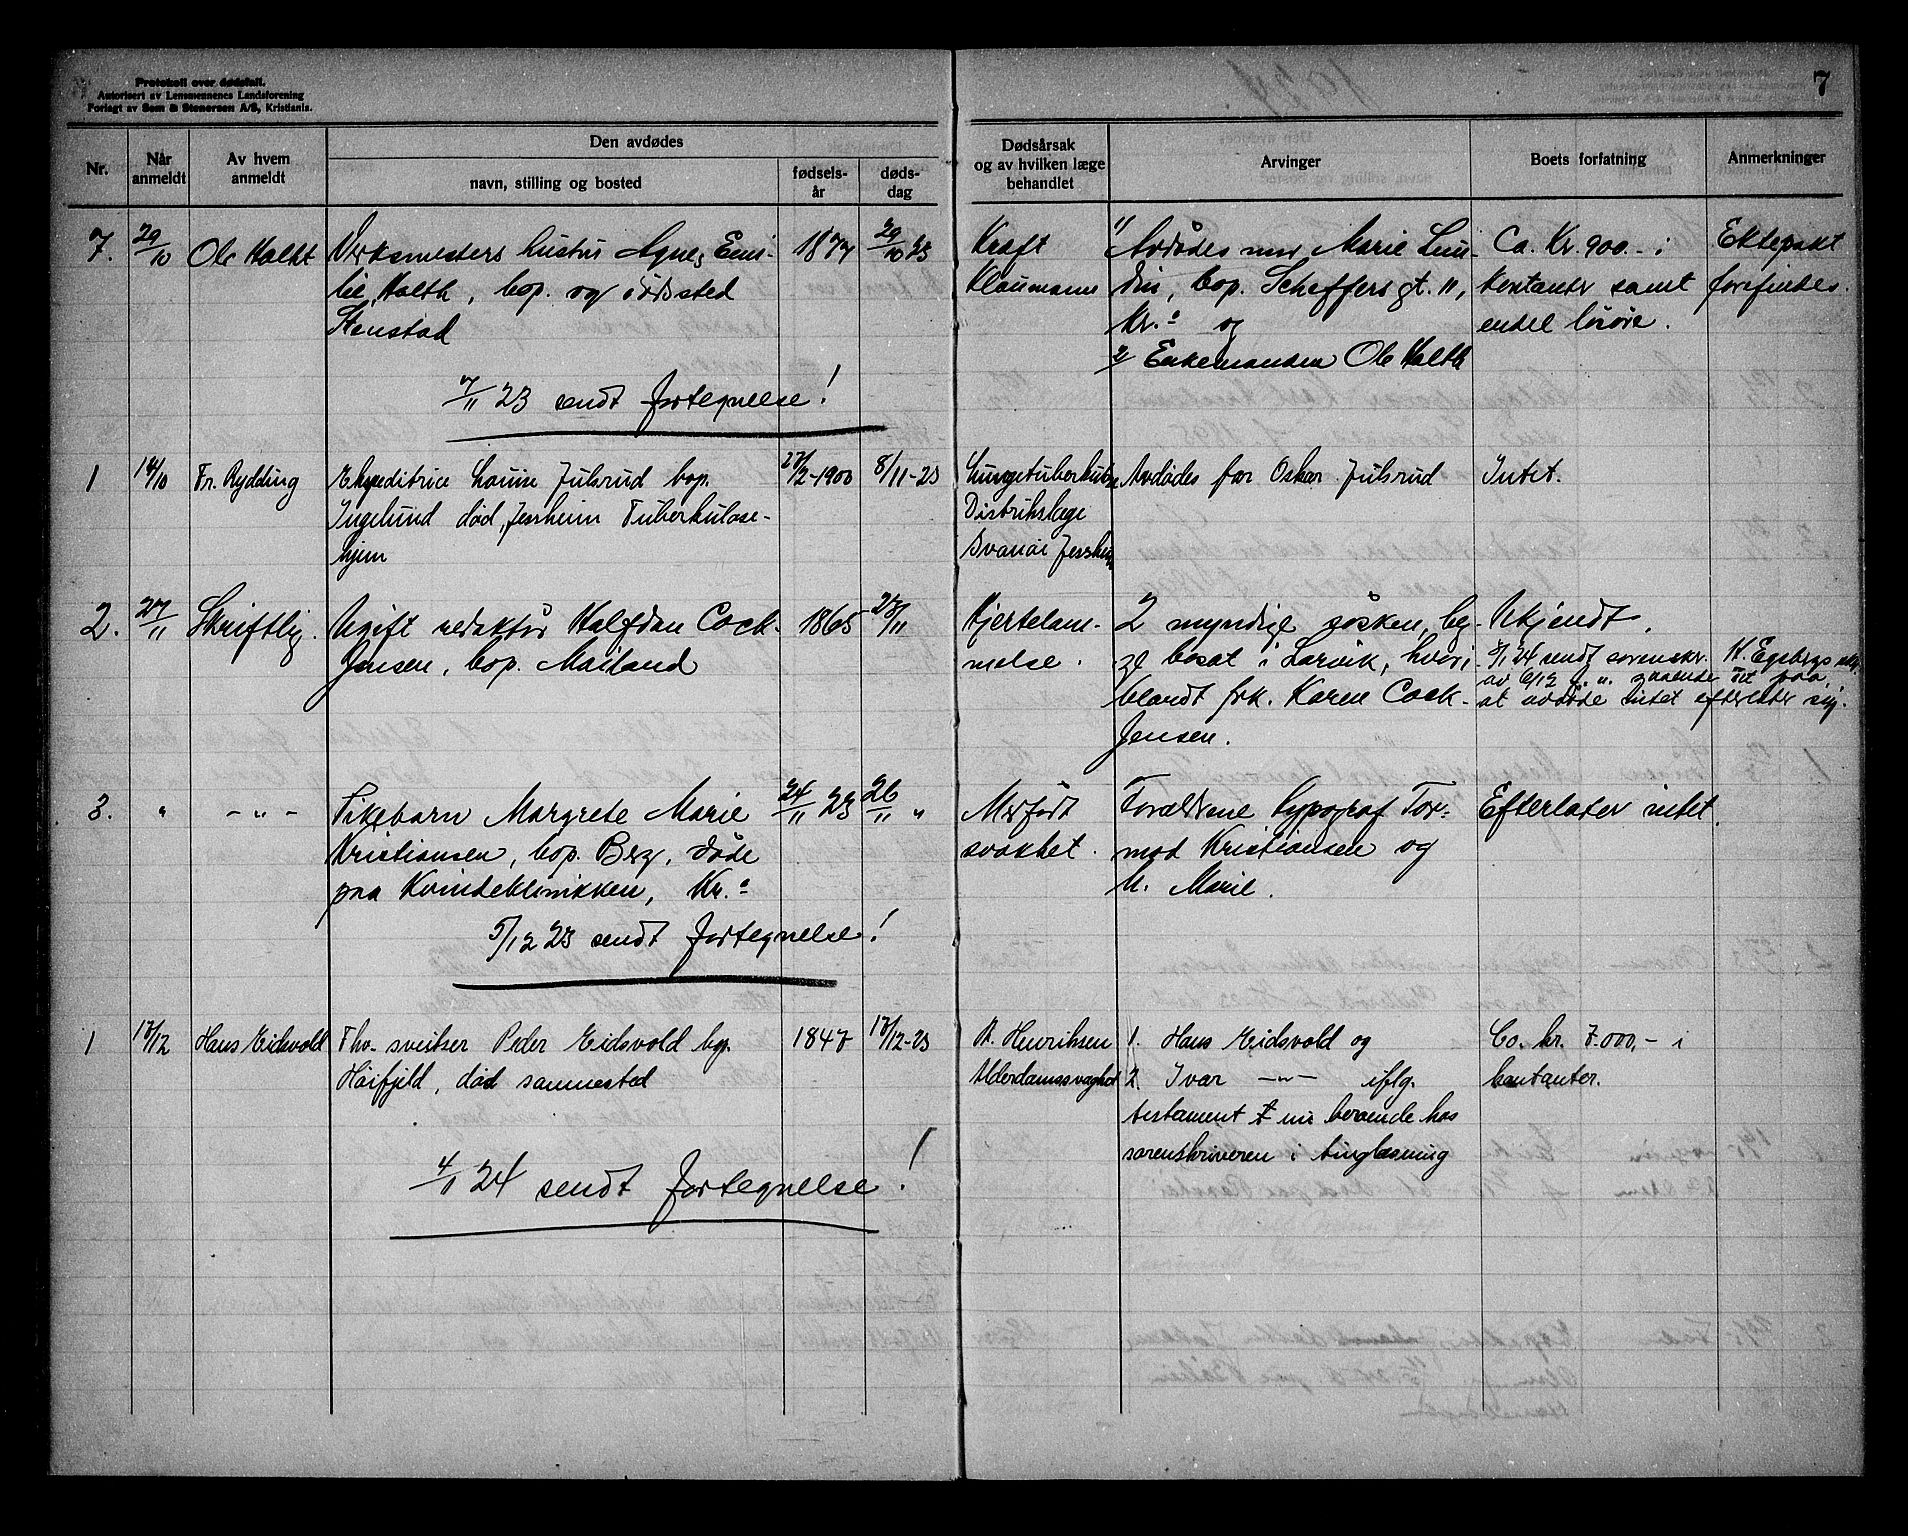 Protokoll over dødsfall.
Autorisert av Lensmennenes Landsforening
Forlagt av Sem & Stenersen A/S, Kristiania.
7
Nr.
Når anmeldt
Av hvem anmeldt
Den avdødes
navn, stilling og bosted
fødsels-
år
døds-
dag
Dødsårsak
og av hvilken læge
behandlet
Arvinger
Boets forfatning
Anmerkninger
7. 29/10 Ole Holth Verksmesters hustru Agnes Emi- 1877 29/10 23
lie Holth, bop. og død sted
Stenstad
Kræft
Klaumann
1/ Avdødes mor Marie Lun-
din, bop. Scheffers gt. 11,
Kr.a og
2/ Enkemanden Ole Holth
Ca. Kr. 900.- i
kontanter samt
endel løsøre.
Ektepakt
forefindes.
7/11 23 sendt fortegnelse!
1 14/10 Fr. Rydding Ekspeditrice Louise Julsrud bop. 27/2-1900 8/11-23
Ingelund død, Jessheim Tuberkulose-
hjem
Lungetuberkulose
Distriktslæge
Svanøi Jessheim
Avdødes far Oskar Julsrud
Intet.
2. 27/11 Skriftlig. Ugift redaktør Halfdan Cock- 1865 23/11
Jensen, bop. Mailand
Hjertelam-
melse.
2 myndige søsken, beg-
ge bosat i Larvik, hvori-
blandt frk. Karen Cock-
Jensen.
Ukjendt.
5/1 24 sendt sorenskr. H. Egebergs
av 6/12 f. å. gaaende ut paa,
at avdøde intet efterlater sig.
3. " - " - Pikebarn Margrete Marie 24/11 23 26/11 "
Kristiansen, bop. Berg, døde
paa Kvindeklinikken, Kr.a
Medfødt
svakhet.
Forældrene typograf Tor-
mod Kristiansen og
h. Marie.
Efterlater intet.
5/12 23 sendt fortegnelse!
1 17/12 Hans Eidsvold Fhv. sveitser Peder Eidsvold bop. 1847 17/12-23
Høifjeld, død sammested
K. Henriksen
Alderdomssvaghet
1. Hans Eidsvold og
2. Ivar - " - iflg.
testament t nu beroende hos
sorenskriveren i tinglæsning
Ca. kr. 7.000,- i
kontanter.
4/1 24 sendt fortegnelse!